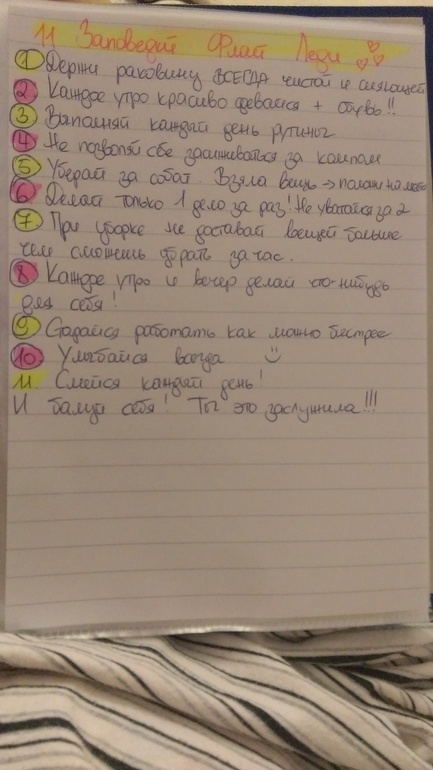 11 Заповедей Флай Леди
1 Держи раковину ВСЕГДА чистой и сияющей
2 Каждое утро красиво одевайся + обувь!!
3 Выполняй каждый день рутины
4 Не позволяй себе засиживаться за компом
5 Убирай за собой. Взяла вещь → положи на место
6 Делай только 1 дело за раз! Не хватайся за 2
7 При уборке не доставай вещей больше
чем сможешь убрать за час.
8 Каждое утро и вечер делай что-нибудь
для себя!
9 Старайся работать как можно быстрее
10 Улыбайся всегда
11 Смейся каждый день!
И балуй себя! Ты это заслужила!!!